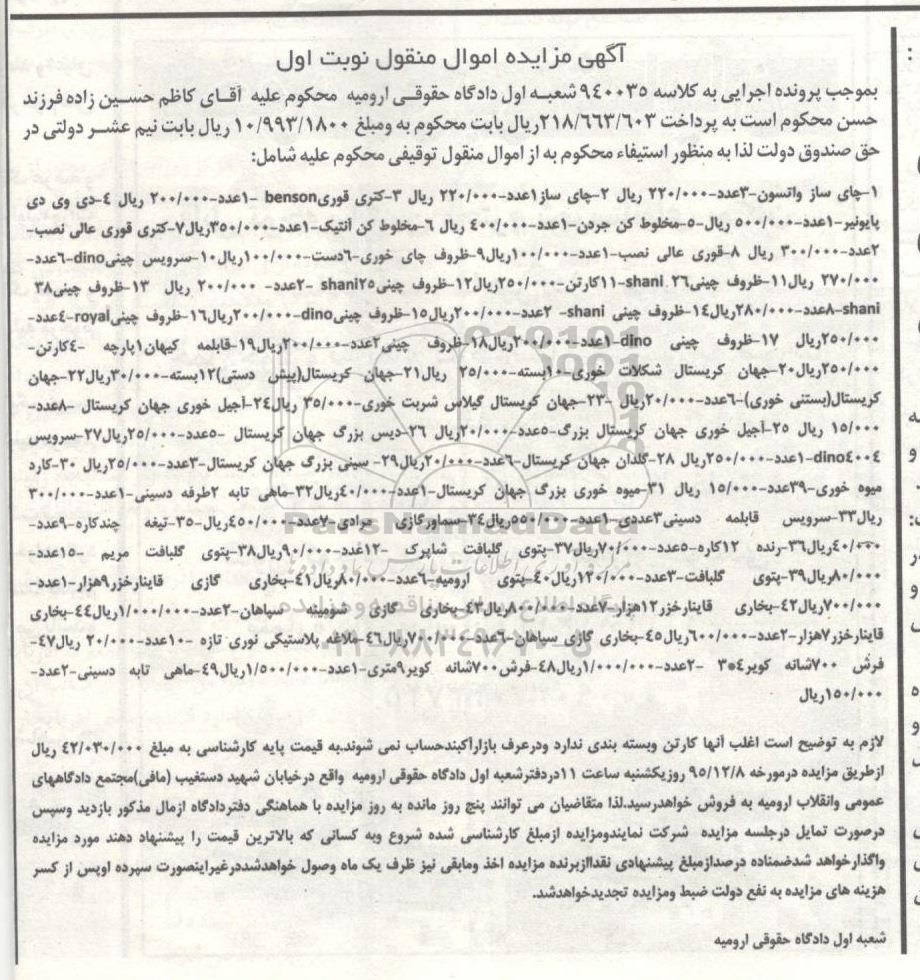 آگهی مزایده اموال منقول نوبت اول
بموجب پرونده اجرایی به کلاسه ۹۴۰۰۳۵ شعبه اول دادگاه حقوقی ارومیه محکوم علیه آقای کاظم حسین زاده فرزند
حسن محکوم است به پرداخت ۲۱۸/۶۶۳/۶۰۳ریال بابت محکوم به ومبلغ ۱۰/۹۹۳/۱۸۰۰ ریال بابت نیم عشر دولتی در
حق صندوق دولت لذا به منظور استیفاء محکوم به از اموال منقول توقیفی محکوم علیه شامل:
۱-چای ساز واتسون-۳عدد-۲۲۰/۰۰۰ ریال ۲-چای ساز۱عدد-۲۲۰/۰۰۰ ریال ۳-کتری قوریbenson -۱عدد-۲۰۰/۰۰۰ ریال ۴-دی وی دی
پایونیر-۱عدد-۵۰۰/۰۰۰ ریال-۵-مخلوط کن جردن-۱عدد-۴۰۰/۰۰۰ ریال ۶-مخلوط کن آنتیک-۱عدد-۳۵۰/۰۰۰ریال۷-کتری قوری عالی نصب-
۲عدد-۳۰۰/۰۰۰ ریال ۸-قوری عالی نصب-۱عدد-۱۰۰/۰۰۰ریال۹-ظروف چای خوری-۶دست-۱۰۰/۰۰۰ریال۱۰-سرویس چینیdino-۶عدد-
۲۷۰/۰۰۰ ریال۱۱-ظروف چینی۲۶ shani-۱۱کارتن-۲۵۰/۰۰۰ریال۱۲-ظروف چینی۲۵shani -۲عدد- ۲۰۰/۰۰۰ ریال ۱۳-ظروف چینی۳۸
shani-۸عدد-۲۸۰/۰۰۰ریال۱۴-ظروف چینی shani- ۲عدد-۲۰۰/۰۰۰ریال۱۵-ظروف چینیdino-۲۰۰/۰۰۰ریال۱۶-ظروف چینیroyal-۴عدد-
۲۵۰/۰۰۰ریال ۱۷-ظروف چینی dino-۱عدد-۲۰۰/۰۰۰ریال۱۸-ظروف چینی۲عدد-۲۰۰/۰۰۰ریال۱۹-قابلمه کیهان۱پارچه -۴کارتن-
۲۵۰/۰۰۰ریال۲۰-جهان کریستال شکلات خوری-۱۰بسته-۲۵/۰۰۰ ریال۲۱-جهان کریستال(پیش دستی)۱۲بسته-۳۰/۰۰۰ریال۲۲-جهان
کریستال(بستنی خوری)-۶عدد-۲۰/۰۰۰ریال -۲۳-جهان کریستال گیلاس شربت خوری-۳۵/۰۰۰ ریال۲۴-آجیل خوری جهان کریستال -۸عدد-
۱۵/۰۰۰ ریال ۲۵-آجیل خوری جهان کریستال بزرگ-۵عدد-۲۰/۰۰۰ریال ۲۶-دیس بزرگ جهان کریستال -۵عدد-۲۵/۰۰۰ریال۲۷-سرویس
dino۴۰۰۴-۱عدد-۲۵۰/۰۰۰ریال ۲۸-گلدان جهان کریستال-۶عدد-۲۰/۰۰۰ریال۲۹- سینی بزرگ جهان کریستال-۳عدد-۲۵/۰۰۰ریال ۳۰-کارد
میوه خوری-۳۹عدد-۱۵/۰۰۰ ریال ۳۱-میوه خوری بزرگ جهان کریستال-۱عدد-۴۰/۰۰۰ریال۳۲-ماهی تابه ۲طرفه دسینی-۱عدد-۳۰۰/۰۰۰
ریال۳۳-سرویس قابلمه دسینی۳عددی-۱عدد-۵۵۰/۰۰۰ریال۳۴-سماورگازی مرادی-۷عدد-۴۵۰/۰۰۰ریال-۳۵-تیغه چندکاره-۹عدد-
۴۰/۰۰۰ریال۳۶-رنده ۱۲کاره-۵عدد-۷۰/۰۰۰ریال۳۷-پتوی گلبافت شاپرک -۱۲عدد-۹۰/۰۰۰ریال۳۸-پتوی گلبافت مریم -۱۵عدد-
۸۰/۰۰۰ریال۳۹-پتوی گلبافت-۳عدد-۱۲۰/۰۰۰ریال۴۰-پتوی ارومیه-۶عدد-۸۰/۰۰۰ریال۴۱-بخاری گازی قاینارخزر۹هزار-۱عدد-
۷۰۰/۰۰۰ریال۴۲-بخاری قاینارخزر۱۲هزار-۷عدد-۸۰۰/۰۰۰ریال۴۳-بخاری گازی شومینه سپاهان-۲عدد-۱/۰۰۰/۰۰۰ریال۴۴-بخاری
قاینارخزر۷هزار-۲عدد-۶۰۰/۰۰۰ریال۴۵-بخاری گازی سپاهان-۶عدد-۷۰۰/۰۰۰ریال۴۶-ملاغه پلاستیکی نوری تازه -۱۰عدد-۲۰/۰۰۰ ریال۴۷-
فرش ۷۰۰شانه کویر۴*۳ -۲عدد-۱/۰۰۰/۰۰۰ریال۴۸-فرش۷۰۰شانه کویر۹متری-۱عدد-۱/۵۰۰/۰۰۰ریال۴۹-ماهی تابه دسینی-۲عدد-
۱۵۰/۰۰۰ریال
لازم به توضیح است اغلب آنها کارتن وبسته بندی ندارد ودرعرف بازارآکبندحساب نمی شوند.به قیمت پایه کارشناسی به مبلغ ۴۲/۰۳۰/۰۰۰ ریال
ازطریق مزایده درمورخه ۹۵/۱۲/۸ روزیکشنبه ساعت ۱۱دردفترشعبه اول دادگاه حقوقی ارومیه واقع درخیابان شهید دستغیب (مافی)مجتمع دادگاههای
عمومی وانقلاب ارومیه به فروش خواهدرسید.لذا متقاضیان می توانند پنج روز مانده به روز مزایده با هماهنگی دفتردادگاه ازمال مذکور بازدید وسپس
درصورت تمایل درجلسه مزایده شرکت نمایندومزایده ازمبلغ کارشناسی شده شروع وبه کسانی که بالاترین قیمت را پیشنهاد دهند مورد مزایده
واگذارخواهد شدضمناده درصدازمبلغ پیشنهادی نقداازبرنده مزایده اخذ ومابقی نیز ظرف یک ماه وصول خواهدشددرغیراینصورت سپرده اوپس از کسر
هزینه های مزایده به نفع دولت ضبط ومزایده تجدیدخواهدشد.
شعبه اول دادگاه حقوقی ارومیه
ParsNamadData